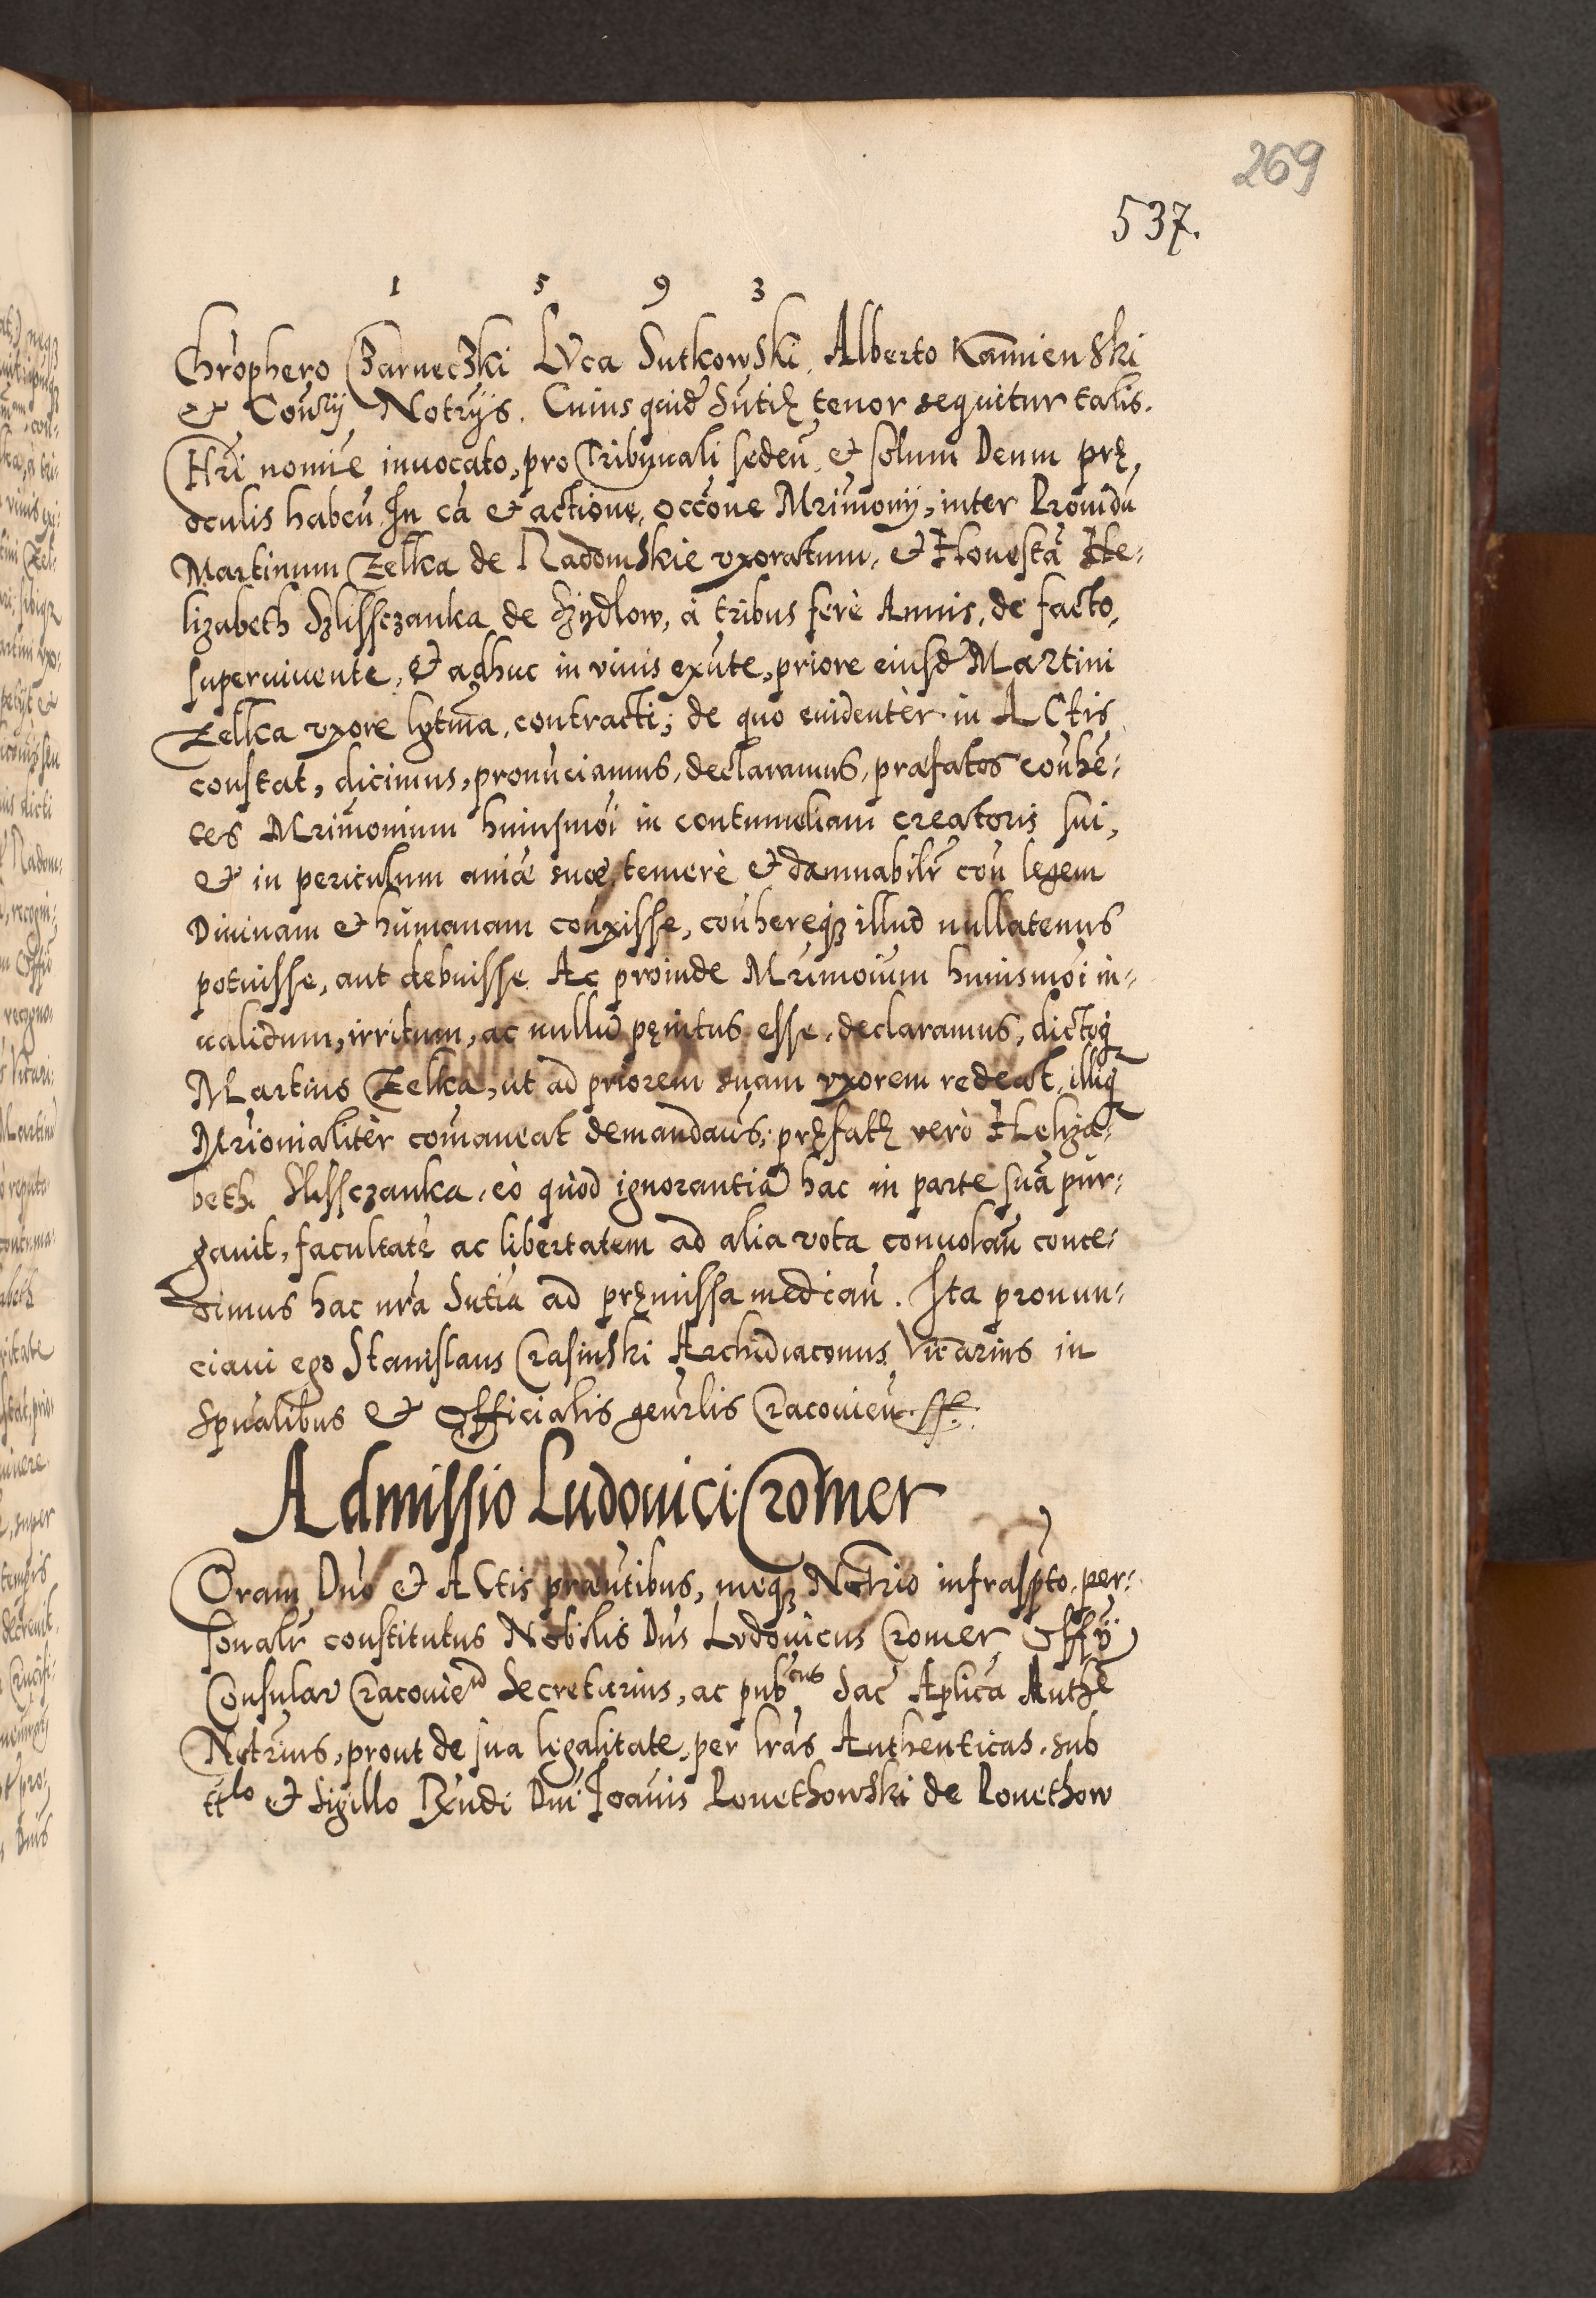 269
537.
1 5 9 3
Chrophero CzarnecZki LVca Sutkowski, Alberto Kamienski
et Consrij Notrijs. Cuius quid Sntię tenor sequitur talis.
Chri nomie inuocato, pro Tribunali seden, et solum Deum prę
oculis haben In ca et actione, occone Mrimonij, inter Prouidu
Martinum Zelka de Radomskie vxoratum, et Honesta He-
lizabeth Szlissczanka de Szydlow, à tribus ferè Annis, de facto,
superuiuente, et adhuc in viuis exnte, priore eiusd Martini
Zelka vxore lgtma, contracti; de quo euidentèr in ACtis
constat, dicimus, pronunciamus, declaramus, præfatos conhen-
tes Mrimonium huiusmoi in contumeliam creatoris sui,
et in periculum aniæ suæ, temerè et damnabilr con legem
Diuinam et humanam conxisse, conhereqz illud nullatenus
potuisse, aut debuisse. Ac proinde Mrimoium huiusmoi in-
ualidum, irritum, ac nullu pęnitus esse, declaramus, dictoq
Martino Zelka, ut ad priorem suam vxorem redeat, illiq
Mrionialitèr comaneat demandaus; pręfatę verò Heliza-
beth Slissczanka, eò quòd ignorantia hac in parte sua pur-
gauit, facultate ac libertatem ad alia vota conuolan conce-
dimus hac nra Sntia ad pręmissa median. Ita pronun-
ciaui ego Stanislaus Crasinski Archidiaconus Vicarius in
Spualibus et Officialis genrlis Cracouien. ss.
Admissio Ludouici Cromer
Coram Dno et ACtis prantibus, meqz Notrio infraspto, per-
sonalr constitutus Nobilis Dns Ludouicus Cromer Offij
Consular Cracouien Secretarius, ac pubcus Sac Aplica Authe
Notrius, prout de sua legalitate, per lras Authenticas, sub
ttlo et Sigillo Rxndi Dni Joanis Powethowski de Powethow